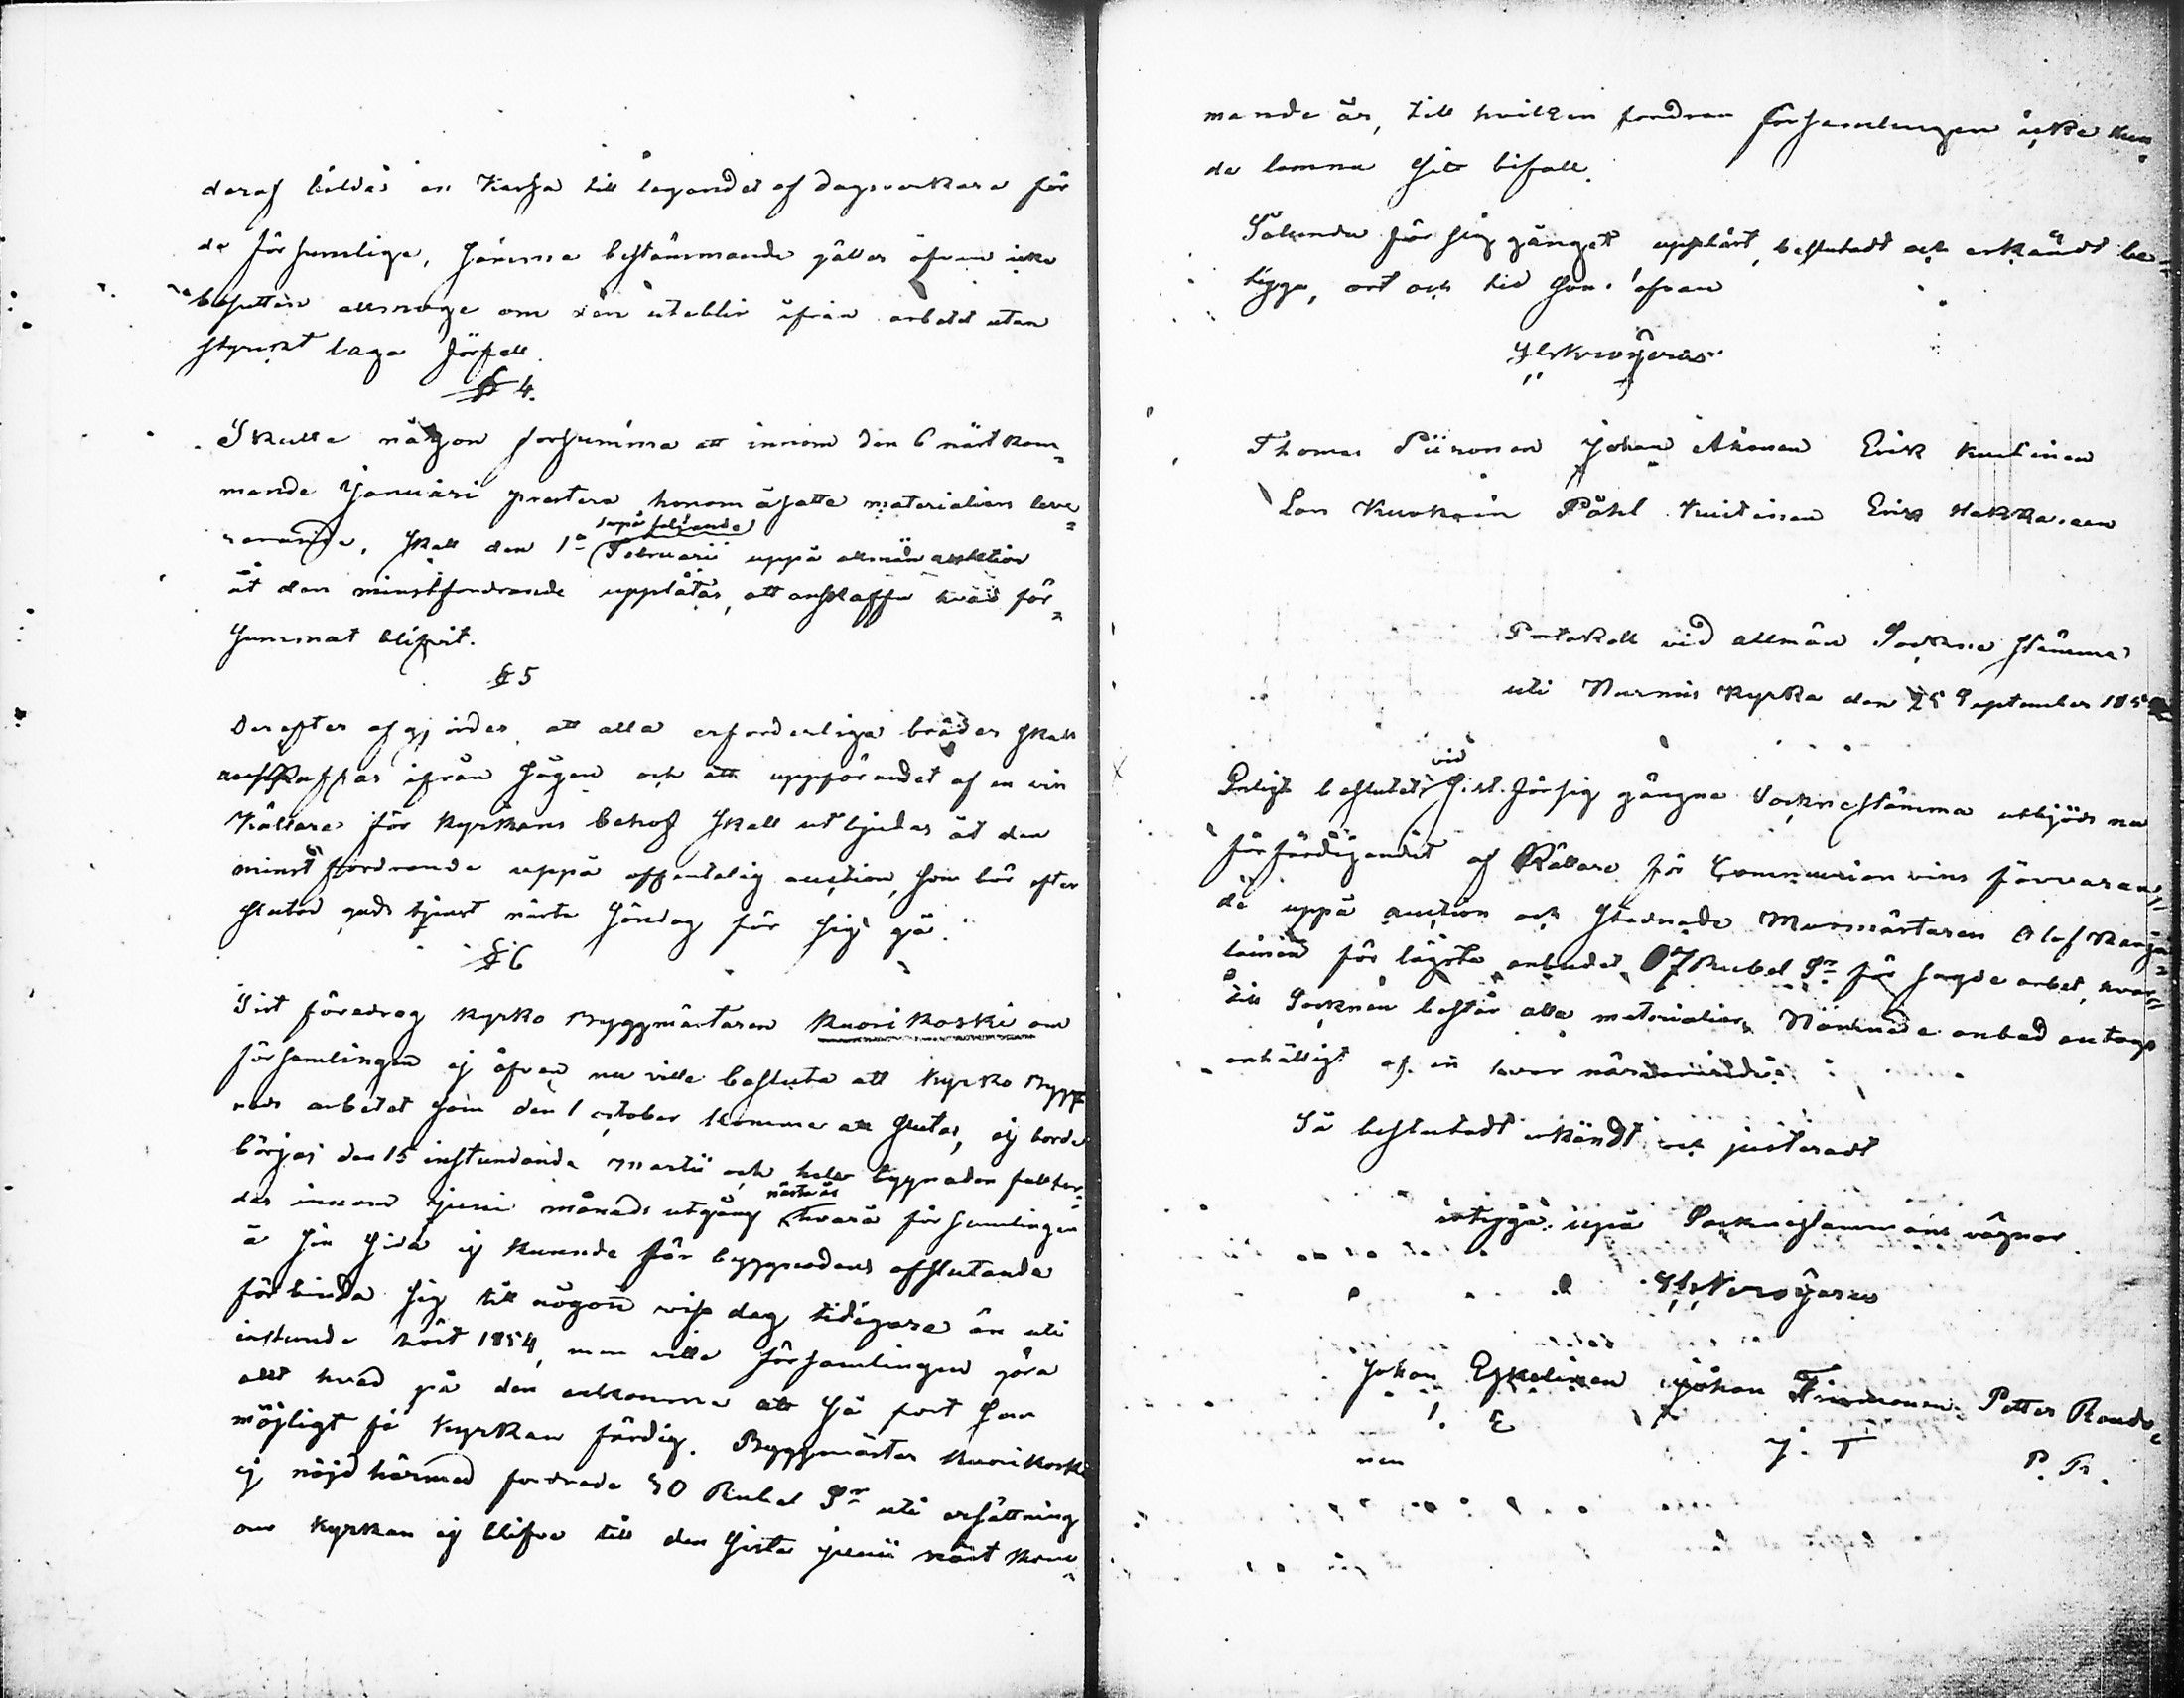 deraf bildas en Kassa till legandet af dagsverkare för
de försumliga, samma bestämmande gäller äfven icke
besuttna allmoge om den utablir ifrån arbetet utan
styrkt laga förfall.
§ 4.
Skulle någon försumma att innom den 6 näst kom=
mande Januari prestera honom åsatte materialiers leve=
rerande, skall den 1a derpå följande Februarii uppå allmän auktion
åt den minstfordrande upplåtas, att anskaffa hvad för=
summat blifvit.
§ 5
Derefter afgjordes, att alla erforderliga bräder skall
anskaffas ifrån Sågen och att uppförandet af en vin
Källare för Kyrkans behof skall utbjudas åt den
minst fordrande uppå offentelig auction, som bör efter
slutad guds tjenst nästa Söndag för sig gå.
§ 6
Sist föredrog Kyrko Byggmästaren Kuorikoski om
församlingen ej äfven nu ville besluta att Kyrko Bygg=
nads arbetet som den 1 october komme att slutas, ej borde
börjas den 15 instundande Martii och hela byggnaden fullför=
das innom Junii månads utgång nästa år hvarå församlingen
å sin sida ej kunnde för byggnadens afslutande
förbinda sig till någon viss dag tidigare än uti
instunde höst 1854, men ville församlingen göra
allt hvad på den ankomme att så fort som
möjligt få Kyrkan färdig. Byggmästar Kuorikoski
ej nöjd härmed fordrade 50 Rubel Sr uti ersättning
om Kyrkan ej blifve till den sista junii näst kom=
mande år, till hvilken fordran församlingen icke kun=
de lemna sitt bifall.
Sålunda för sig gånget upplärt, beslutadt och erkändt be=
tygga, ort och tid som ofvan
Thomas Piironen Johan Ahonen Erik Kuitinen
Lars Kuokain Påhl Kuitinen Erik Hakkaraen
Protokoll vid allmän Sockne stämma
uti Nurmis Kyrka den 25 September 185
Enligt beslutet vid sist försig gångne Socknestämma utbjöds nu
förfärdigandet af Källare för Communion vins förvaran=
de uppå auction och stadnade Murmästaren Olof Kanga=
lainen för lägsta anbudet 07 Rubel Sr för sagde arbet, hvar=
till Socknen består alla materialier, Nämnade anbud antogs
enhälligt af en hvar närvarande
Så beslutadt erkändt och justeradt
intyga upå Socknestämmans vägnar
Johan Eskelinen Johan Timonen Petter Rauda=
J. E J. T P. R.
nen